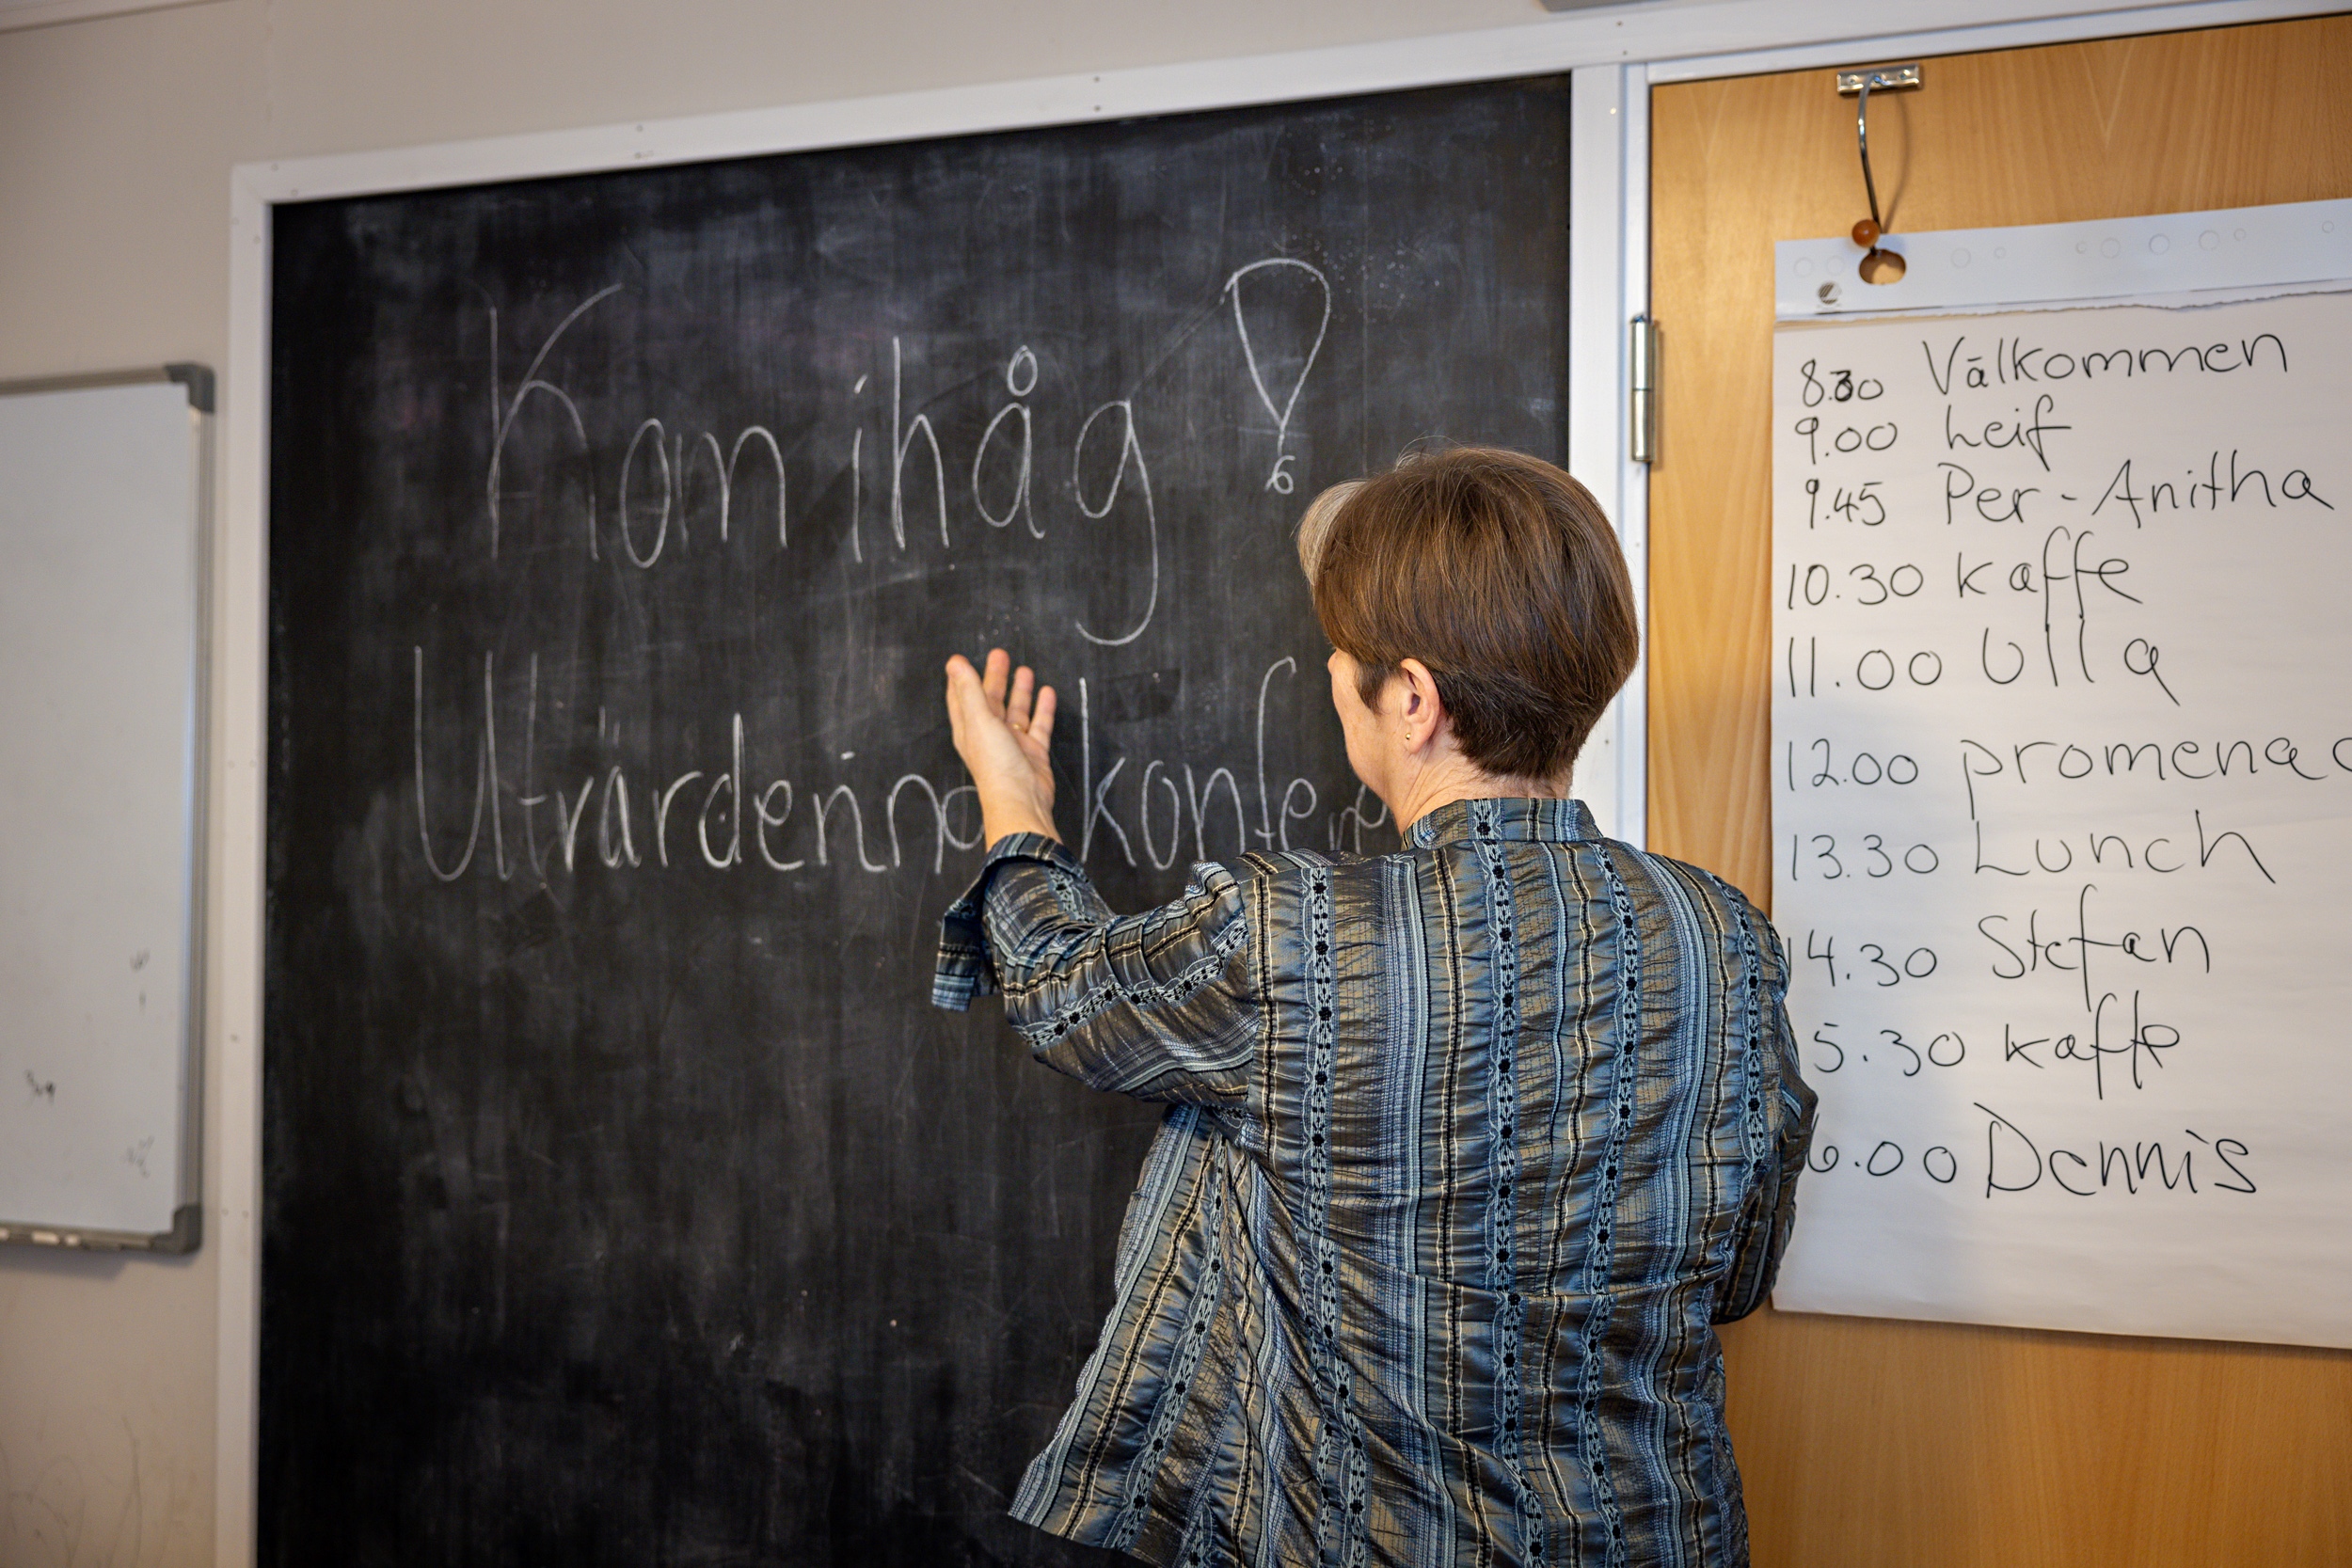 Kom ihåg!
Utvärdering konfe
8.30 Välkommen
9.00 Leif
9.45 Per-Anitha
10.30 kaffe
11.00 Ulla
12.00 promenad
13.30 Lunch
14.30 Stefan
5.30 kaffe
6.00 Dennis